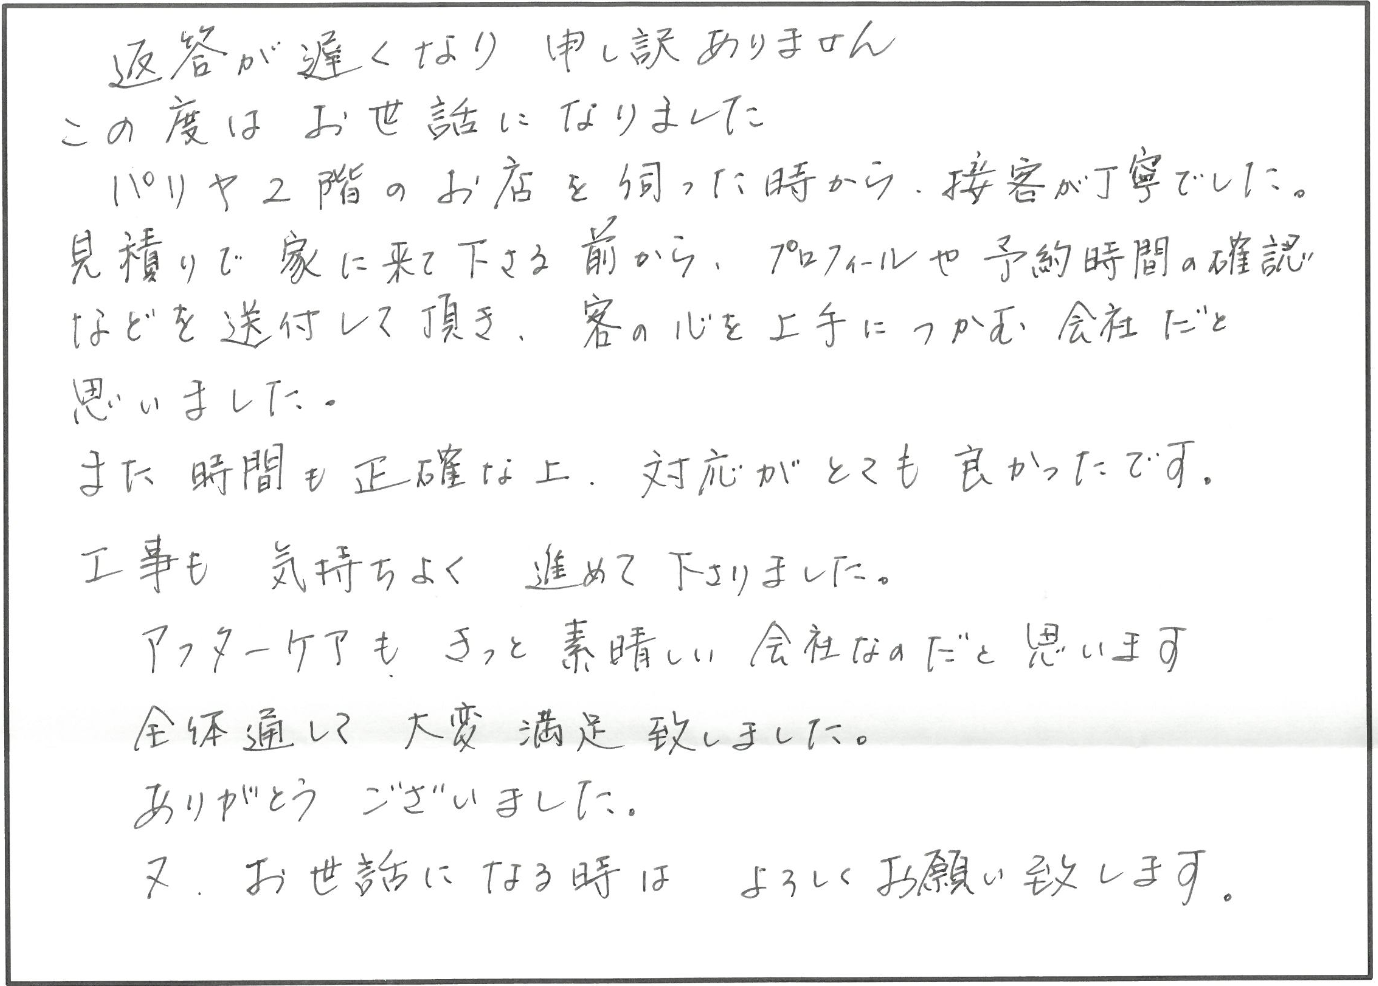 返答が遅くなり 申し訳ありません
この度は お世話になりました
パリヤ2階のお店を伺った時から、接客が丁寧でした。
見積りで家に来て下さる前から、プロフィールや予約時間の確認
などを送付して頂き、客の心を上手につかむ会社だと
思いました。
また時間も正確な上、対応がとても良かったです。
工事も 気持ちよく 進めて下さりました。
アフターケアも きっと素晴しい会社なのだと思います
全体通して 大変満足致しました。
ありがとう ございました。
又、お世話になる時は よろしくお願い致します。